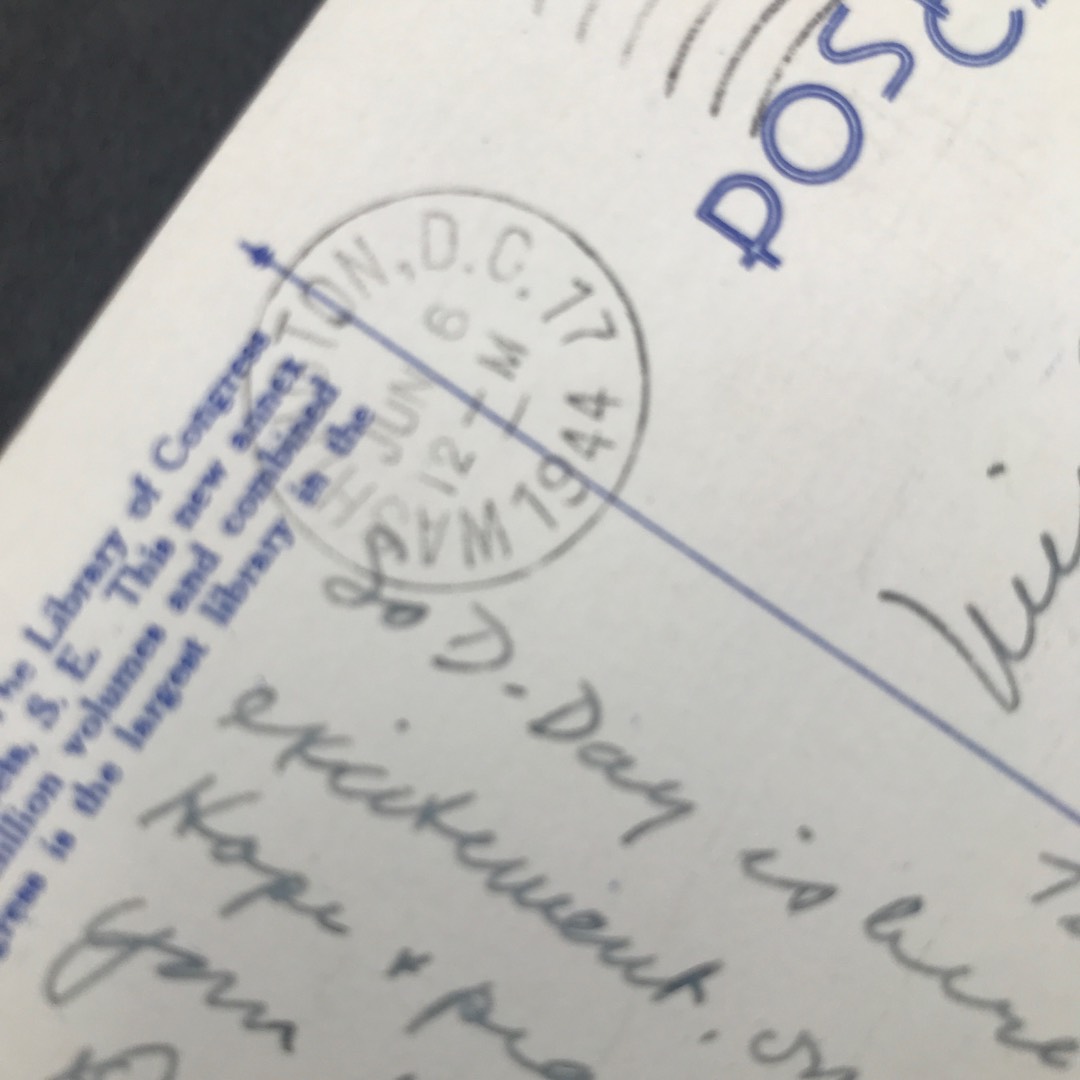 POSTC
WASHINGTON, D.C. 17
JUN 6
12 - M
1944
he Library of Congress
S. E. This new annex
million volumes and combined
is the largest library in the
So D-Day is here
excitement.
Hope +
you